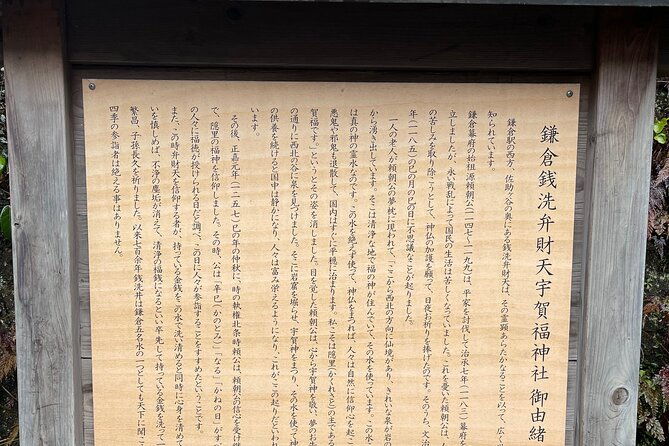 鎌倉銭洗弁財天宇賀福神社 御由緒
鎌倉駅の西方、佐助ヶ谷の奥にある銭洗弁財天は、その霊顕あらたかなることを以て、広く
知られています。
鎌倉幕府の始祖源頼朝公(一一四七〜一一九九)は、平家を討伐して治承七年(一一八三)幕府を
立しましたが、永い戦乱によって国民の生活は苦しくなっていました。これを憂いた頼朝公は、
の苦しみを取り除こうとして、神仏の加護を願って、日夜お祈りを捧げたのです。そのうち、文治
年(一一八五)の巳の月の巳の日に不思議なことが起りました。
一人の老人が頼朝公の夢枕に現われて、「ここから西北の方向に仙境があり、きれいな泉が岩の
から湧き出しています。そこは清浄な地で福の神が住んでいて、その水を使っています。この水
は真の神の霊水なのです。この水を絶えず使って、神仏をまつれば、人々は自然に信仰心を起こ
悪鬼や邪鬼も退散して、国内はすぐに平穏に治まります。私こそは隠里(かくれざと)の主である
賀福です。」というとその姿を消しました。目を覚した頼朝公は、心から宇賀神を敬い、夢のお
の通りに西北の谷に泉を見つけました。そこに岩窟を掘らせ、宇賀神をまつり、その水を使って神
の供養を続けると国中は静かになり、人々は富み栄えるようになり、これがこの起りだといわれ
います。
その後、正嘉元年(一二五七)巳の年の仲秋に、時の執権北条時頼公は、頼朝公の信心を受け継
で、隠里の福神を信仰しました。その時、公は「辛巳(かのとみ)」「なる「かねの日」がすべ
の人々に福徳が授けられる日だと調べ、この日に人々が参詣することをすすめたということです。
また、この時弁財天を信仰する者が、持っている金銭をこの水で洗い清めると同時に心身を清めて
いを慎しめば、不浄の塵垢が消えて、清浄の福銭になるといい卒先して持っている金銭を洗って
繁昌、子孫長久を祈りました。以来七百余年銭洗井は鎌倉五名水の一つとしても天下に聞こ
四季の参詣者は絶える事はありません。